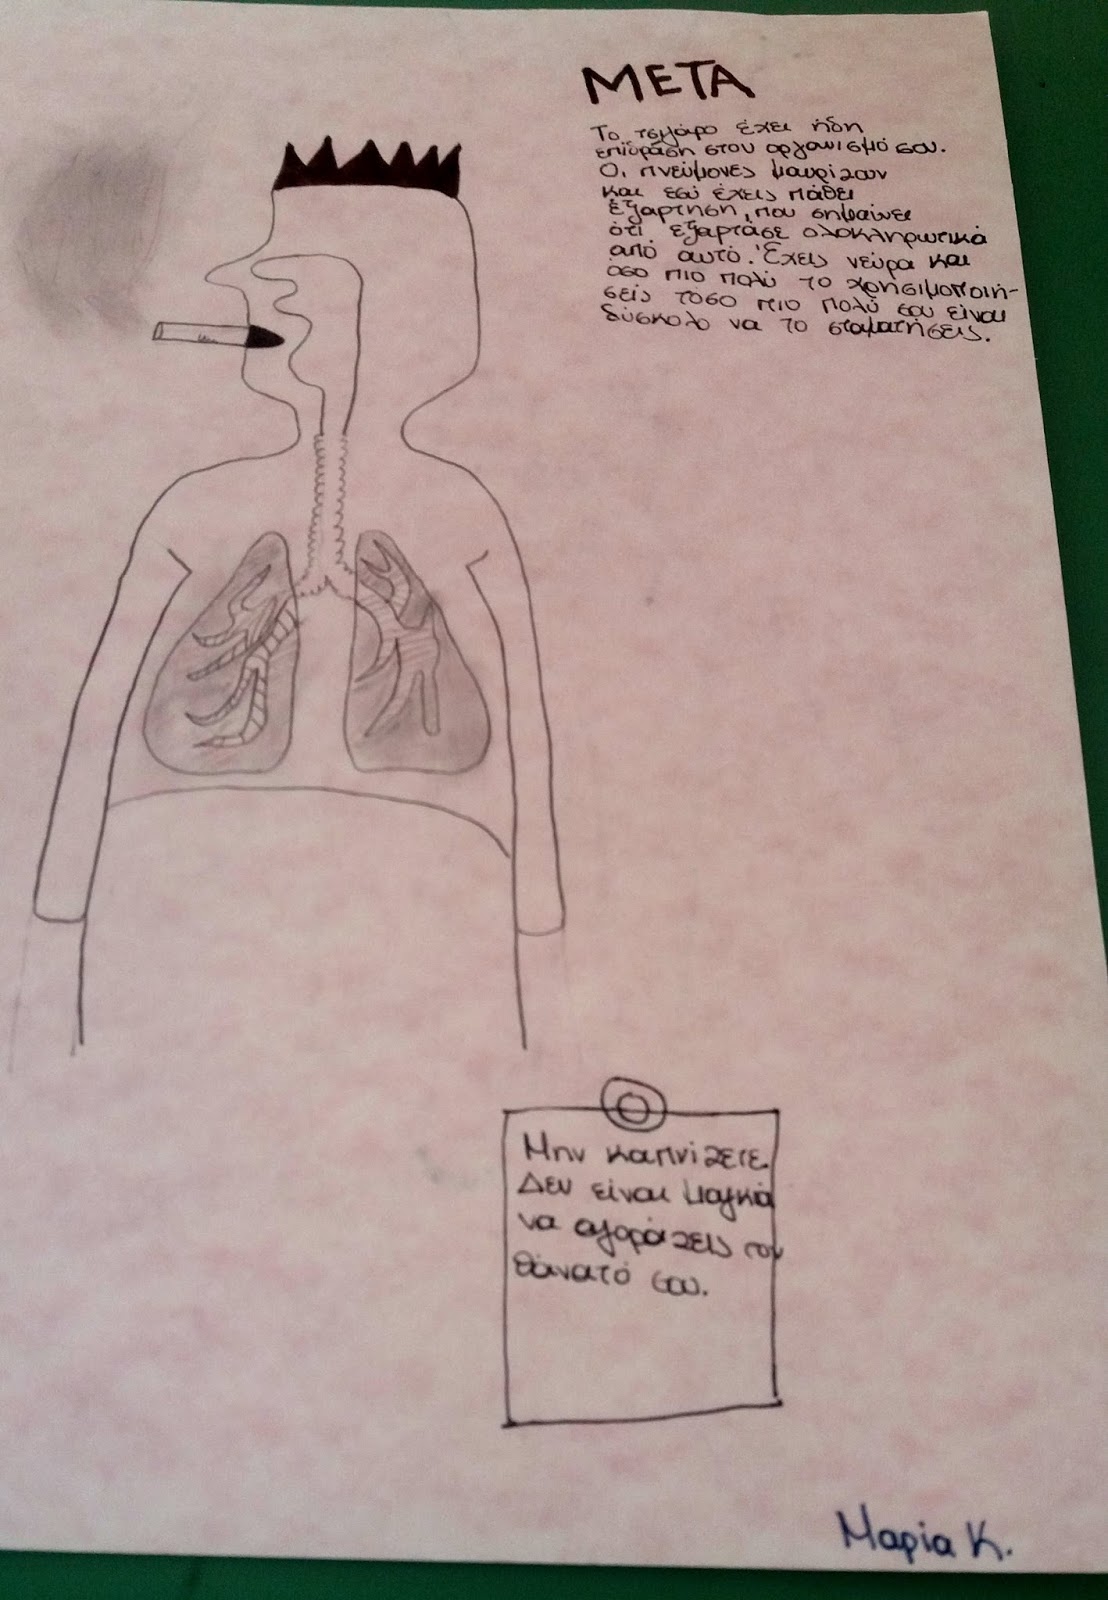 ΜΕΤΑ
Το τσιγάρο έχει ήδη
επίδραση στον οργανισμό σου.
Οι πνεύμονες μαυρίζουν
και εσύ έχεις πάθει
εξάρτηση, που σημαίνει
ότι εξαρτάσε ολοκληρωτικά
από αυτό. Έχεις νεύρα και
όσο πιο πολύ το χρησιμοποιή-
σεις τόσο πιο πολύ σου είναι
δύσκολο να το σταματήσεις.
Μην καπνίζετε.
Δεν είναι μαγκιά
να αγοράζεις τον
θάνατό σου.
Μαρία Κ.